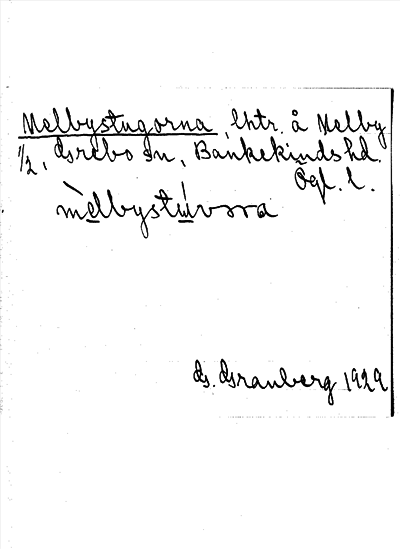 Melbystugorna, lhtr. å Melby
1/2, Grebo sn, Bankekinds hd.
Ögl. l.
mèlbystu̍vʌra
G. Granberg 1929